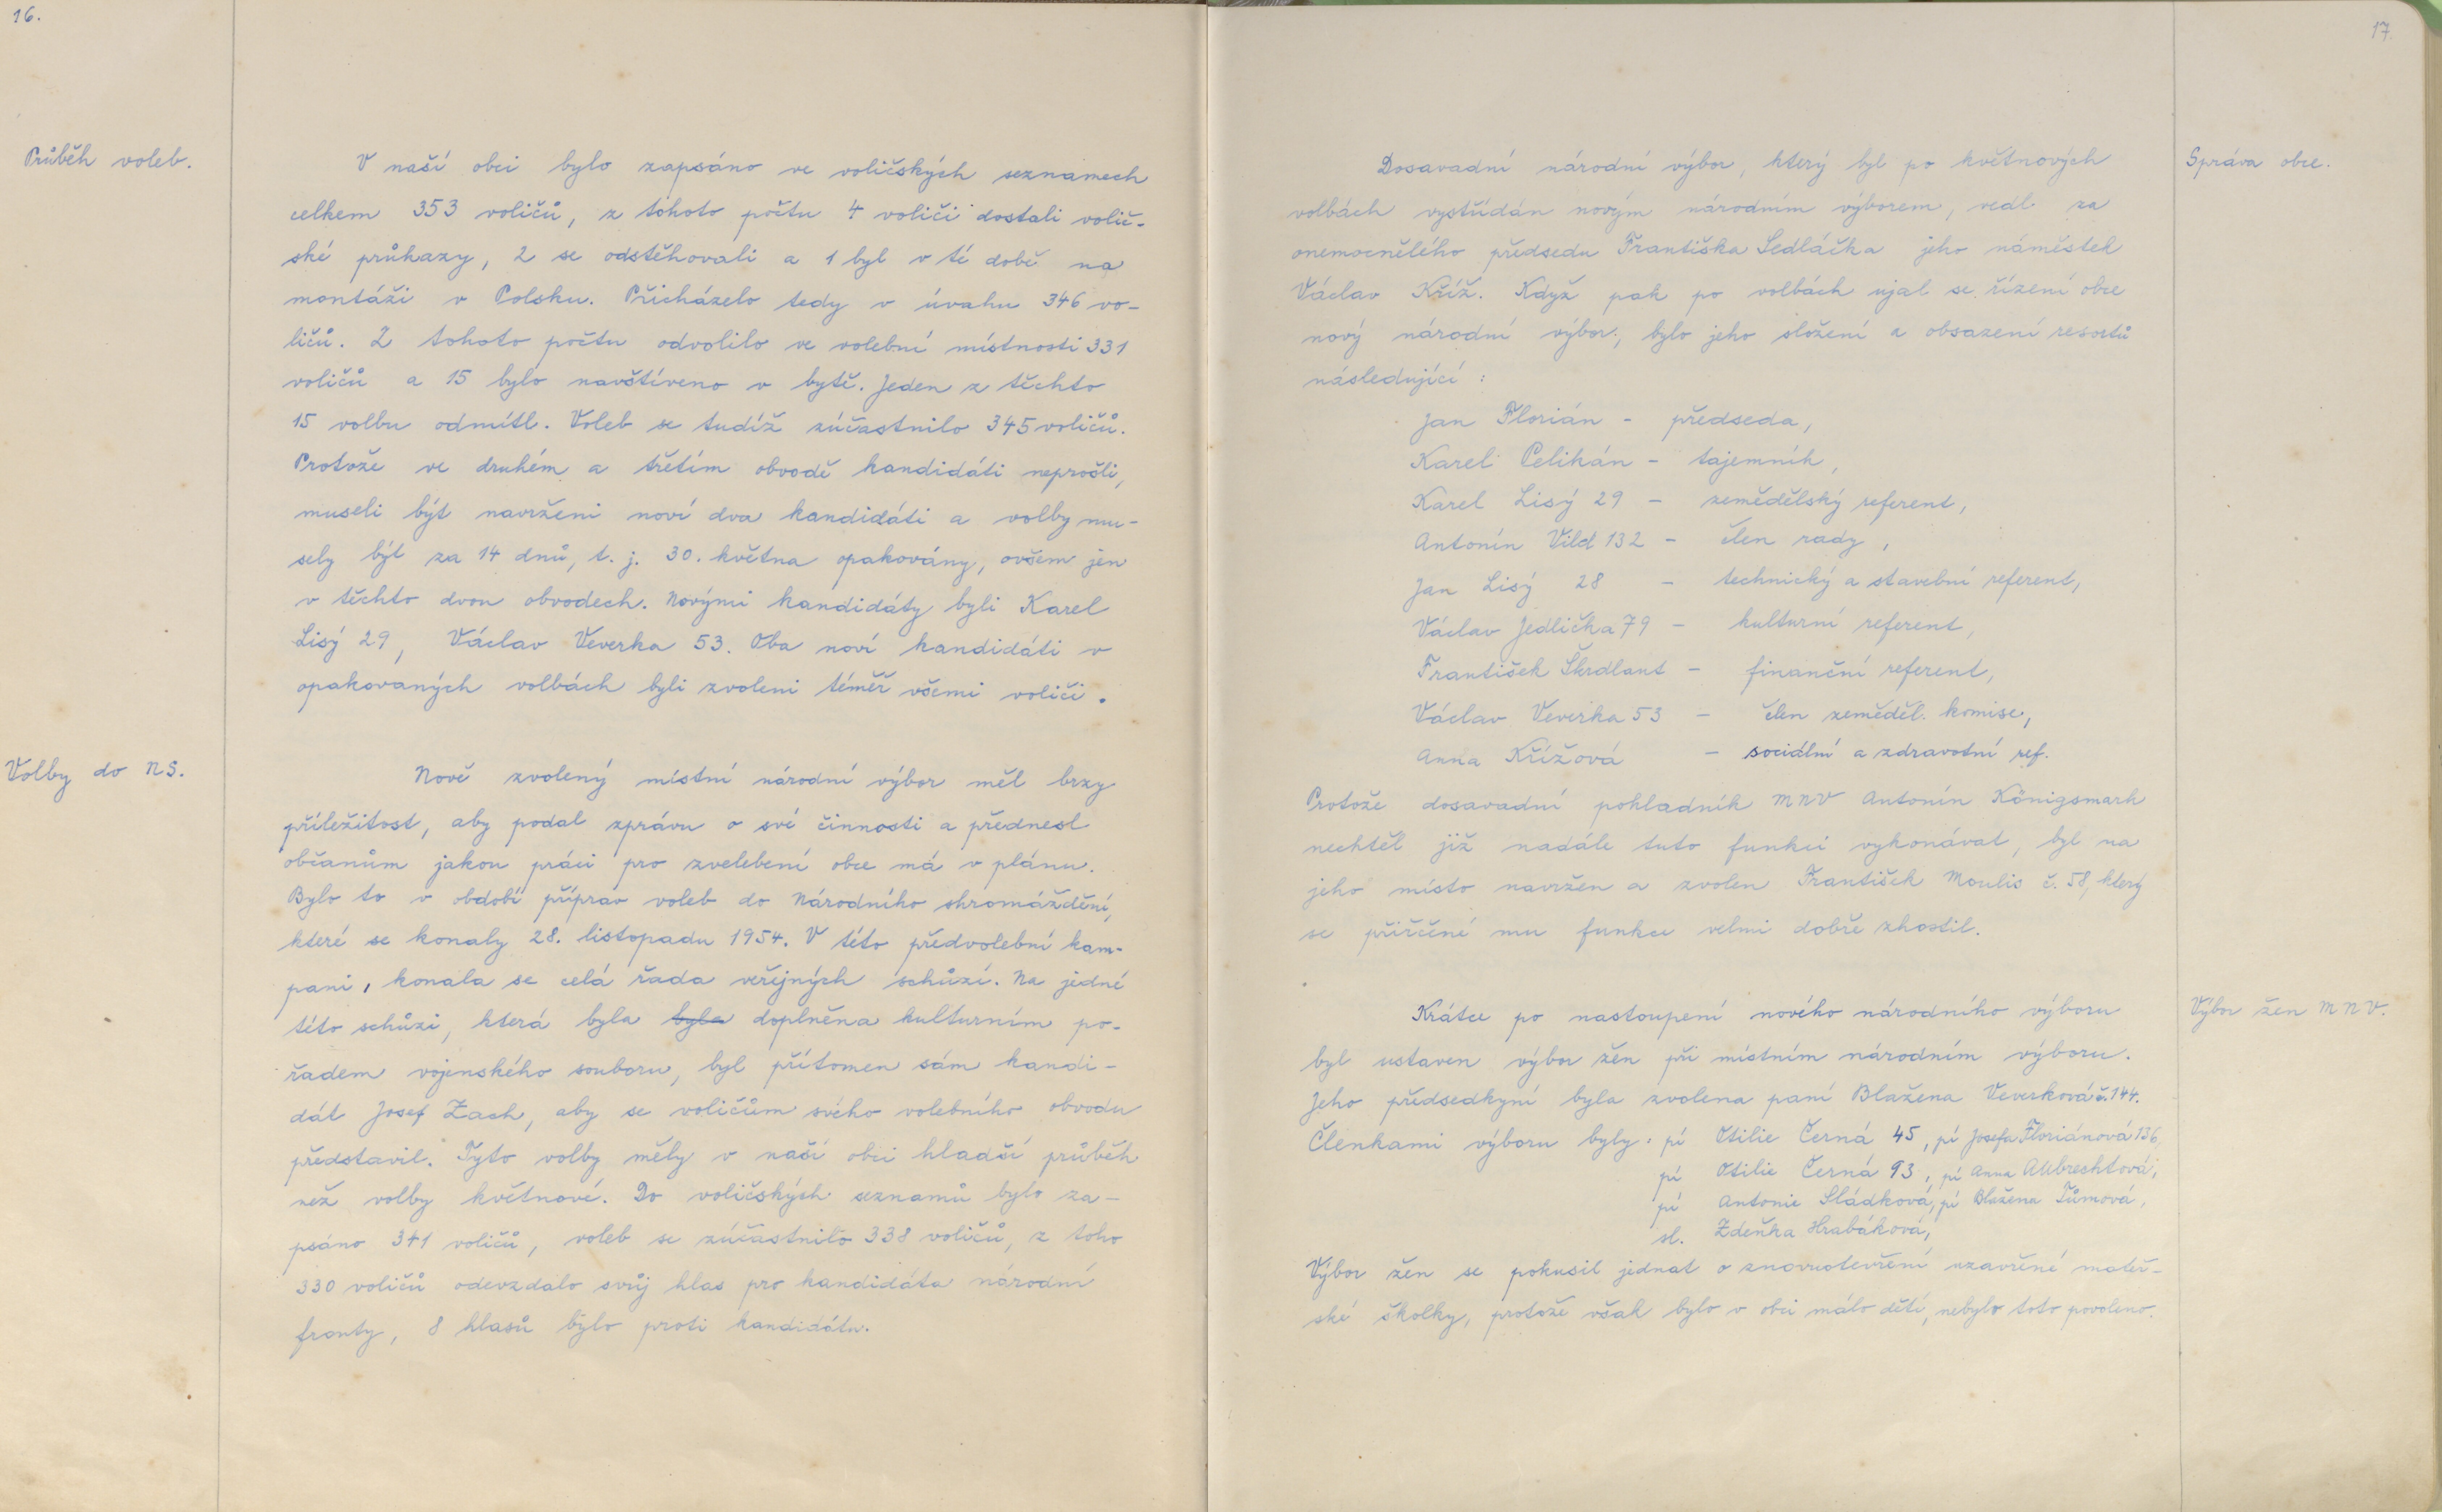 16.
Průběh voleb.
V naší obci bylo zapsáno ve voličských seznamech
celkem 353 voličů, z tohoto počtu 4 voliči dostali volič-
ské průkazy, 2 se odstěhovali a 1 byl v té době na
montáži v Polsku. Přicházelo tedy v úvahu 346 vo-
ličů. Z tohoto počtu odvolilo ve volební místnosti 331
voličů a 15 bylo navštíveno v bytě. Jeden z těchto
15 volbu odmítl. Voleb se tudíž zúčastnilo 345 voličů.
Protože ve druhém a třetím obvodě kandidáti neprošli,
museli být navrženi noví dva kandidáti a volby mu-
sely být za 14 dnů, t. j. 30. května opakovány, ovšem jen
v těchto dvou obvodech. Novými kandidáty byli Karel
Lisý 29, Václav Veverka 53. Oba noví kandidáti v
opakovaných volbách byli zvoleni téměř všemi voliči.
Volby do NS.
Nově zvolený místní národní výbor měl brzy
příležitost, aby podal zprávu o své činnosti a přednesl
občanům jakou práci pro zvelebení obce má v plánu.
Bylo to v období příprav voleb do Národního shromáždění,
které se konaly 28. listopadu 1954. V této předvolební kam-
pani, konala se celá řada veřejných schůzí. Na jedné
této schůzi, která byla byla doplněna kulturním po-
řadem vojenského souboru, byl přítomen sám kandi-
dát Josef Zach, aby se voličům svého volebního obvodu
představil. Tyto volby měly v naší obci hladší průběh
než volby květnové. Do voličských seznamů bylo za-
psáno 341 voličů, voleb se zúčastnilo 338 voličů, z toho
330 voličů odevzdalo svůj hlas pro kandidáta národní
fronty, 8 hlasů bylo proti kandidátu.
17.
Správa obce.
Dosavadní národní výbor, který byl po květnových
volbách vystřídán novým národním výborem, vedl za
onemocnělého předsedu Františka Sedláčka jeho náměstek
Václav Kříž. Když pak po volbách ujal se řízení obce
nový národní výbor, bylo jeho složení a obsazení resortů
následující:
Jan Florián - předseda,
Karel Pelikán - tajemník,
Karel Lisý 29 - zemědělský referent,
Antonín Vild 132 - člen rady,
Jan Lisý 28 - technický a stavební referent,
Václav Jedlička 79 - kulturní referent,
František Škrdlant - finanční referent,
Václav Veverka 53 - člen zeměděl. komise,
Anna Křížová - sociální a zdravotní ref.
Protože dosavadní pokladník MNV Antonín Königsmark
nechtěl již nadále tuto funkci vykonávat, byl na
jeho místo navržen a zvolen František Moulis č. 58, který
se přiřčené mu funkce velmi dobře zhostil.
Výbor žen MNV.
Krátce po nastoupení nového národního výboru
byl ustaven výbor žen při místním národním výboru.
Jeho předsedkyní byla zvolena paní Blažena Veverková č.144.
Členkami výboru byly: pí Otilie Černá 45, pí Josefa Floriánová 136,
pí Otilie Černá 93, pí Anna Allbreshtová,
pí Antonie Sládková, pí Blažena Tůmová,
sl. Zdeňka Hrabáková,
Výbor žen se pokusil jednat o znovuotevření uzavřené mateř-
ské školky, protože však bylo v obci málo dětí, nebylo toto povoleno.